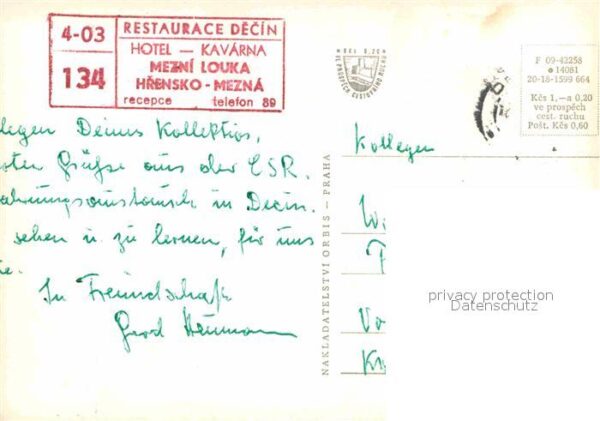 4-03
134
RESTAURACE DĚČÍN
HOTEL — KAVÁRNA
MEZNÍ LOUKA
HŘENSKO-MEZNÁ
recepce telefon 89
legen Deines Kollektivs,
Grüße aus der ČSR.
in Decin.
sehen u. zu lernen, für uns
In Freundschaft
Gerd
NAKLADATELSTVÍ ORBIS — PRAHA
VE PROSPĚCH CESTOVNÍHO RUCHU
F 09-42258
14081
20-18-1599 664
Kčs 1,—a 0,20
ve prospěch
cest. ruchu
Pošt. Kčs 0,60
Kollegen
privacy protection
Datenschutz